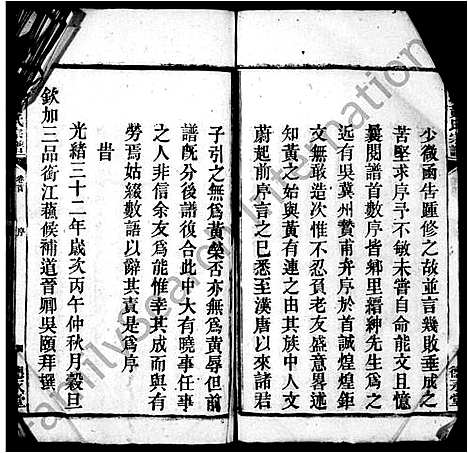 少微函告踵修之故並言幾敗垂成之
苦堅求序予不敏未嘗自命能文且憶
曩閱譜首數序皆鄉里縉紳先生爲之
近有吳冀州贊甫弁序於首誠煌煌鉅
文無敢造次惟不忍負老友盛意畧述
知黃之始與黃有連之由其族中人文
蔚起前序言之巳悉至漢唐以來諸君
子引之無爲黃榮否亦無爲黃辱但前
譜旣分後譜復合此中大有曉事任事
之人非信余友爲能惟幸其成而與有
勞焉姑綴數語以辭其責是爲序
旹
光緒三十二年歲次丙午仲秋月穀旦
欽加三品銜江蘓候補道晉卿吳頤拜撰
氏宗譜
卷首
序
FamilySearch International